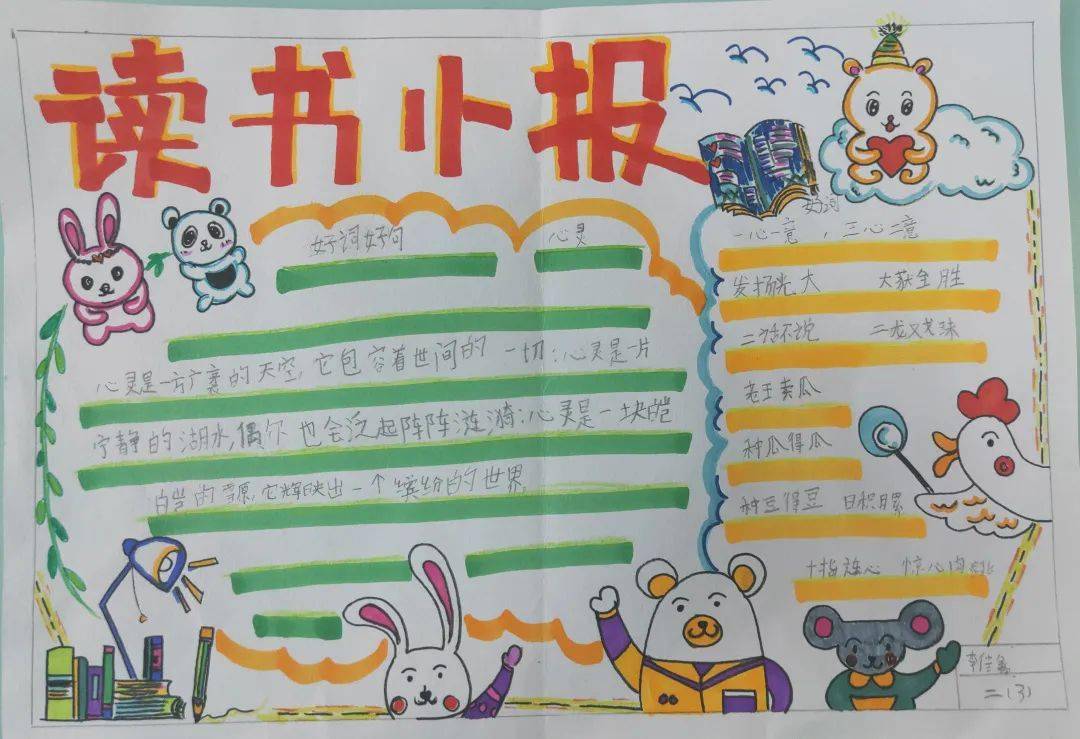 读书小报
好词好句 心灵
心灵是一方广袤的天空,它包容着世间的一切;心灵是一片
宁静的湖水,偶尔也会泛起阵阵涟漪;心灵是一块皑
白皑的雪原,它辉映出一个缤纷的世界.
好词
一心一意,三心二意
发扬光大 大获全胜
二话不说 二龙戏珠
老王卖瓜
种瓜得瓜
种豆得豆 日积月累
十指连心 惊心肉跳
二(3)